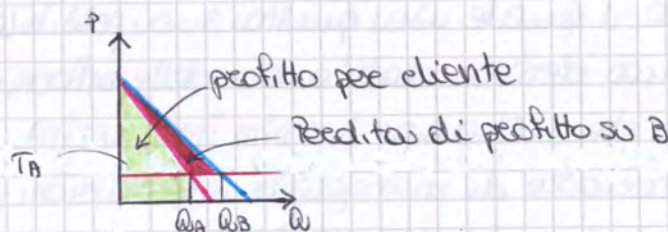 P
profitto per cliente
Perdita di profitto su B
TA
QA QB Q